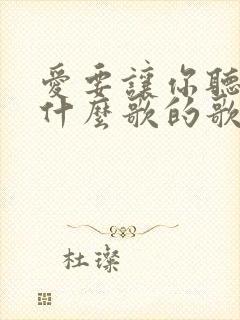 愛要讓你聽
什麼歌的歌
杜璨